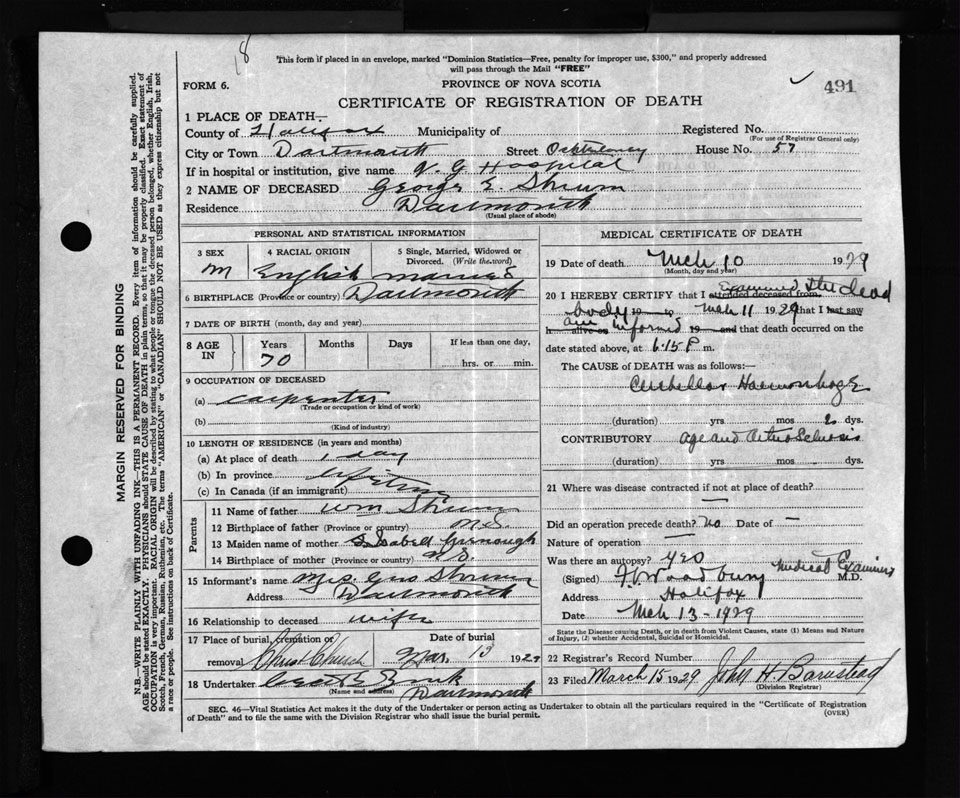 8
This form if placed in an envelope, marked "Dominion Statistics—Free, penalty for improper use, $300," and properly addressed
will pass through the Mail "FREE"
FORM 6.
PROVINCE OF NOVA SCOTIA
491
CERTIFICATE OF REGISTRATION OF DEATH
1 PLACE OF DEATH—
County of Halifax Municipality of Registered No.
(For use of Registrar General only)
City or Town Dartmouth Street House No. 57
If in hospital or institution, give name V. G. Hospital
2 NAME OF DECEASED George E. Shrum
Residence Dartmouth
(Usual place of abode)
PERSONAL AND STATISTICAL INFORMATION
3 SEX M
4 RACIAL ORIGIN English
5 Single, Married, Widowed or Divorced. (Write the word) married
6 BIRTHPLACE (Province or country) Dartmouth
7 DATE OF BIRTH (month, day and year)
8 AGE IN Years 70 Months Days If less than one day, hrs. or min.
9 OCCUPATION OF DECEASED
(a) carpenter
(Trade or occupation or kind of work)
(b)
(Kind of industry)
10 LENGTH OF RESIDENCE (in years and months)
(a) At place of death 1 day
(b) In province lifetime
(c) In Canada (if an immigrant)
Parents
11 Name of father Wm Shrum
12 Birthplace of father (Province or country) N.S.
13 Maiden name of mother Isabell
14 Birthplace of mother (Province or country) N.S.
15 Informant's name Mrs. Geo Shrum
Address Dartmouth
16 Relationship to deceased wife
17 Place of burial, cremation or removal Christ Church
Date of burial Mar. 13 1929
18 Undertaker
(Name and address) Dartmouth
MEDICAL CERTIFICATE OF DEATH
19 Date of death Mch 10 1929
(Month, day and year)
20 I HEREBY CERTIFY that I attended deceased from examined the dead
body 19 to Mch 11 1929 that I last saw
h alive on am informed 19 and that death occurred on
date stated above, at 6.15 P. m.
The CAUSE of DEATH was as follows:—
Cerebellar Haemorrhage
(duration) yrs mos 2 dys.
CONTRIBUTORY Age and Arterio Sclerosis
(duration) yrs mos dys.
21 Where was disease contracted if not at place of death? —
Did an operation precede death? no Date of —
Nature of operation —
Was there an autopsy? Yes
(Signed) Woodbury Medical Examiner M.D.
Address Halifax
Date Mch 13 - 1929
State the Disease causing Death, or in death from Violent Causes, state (1) Means and Nature
of Injury, (2) whether Accidental, Suicidal or Homicidal.
22 Registrar's Record Number
23 Filed March 15 1929 John H. Barnstead
(Division Registrar)
SEC. 46—Vital Statistics Act makes it the duty of the Undertaker or person acting as Undertaker to obtain all the particulars required in the "Certificate of Registration
of Death" and to file the same with the Division Registrar who shall issue the burial permit.
(OVER)
MARGIN RESERVED FOR BINDING
N.B.—WRITE PLAINLY WITH UNFADING INK—THIS IS A PERMANENT RECORD. Every item of information should be carefully supplied.
AGE should be stated EXACTLY. PHYSICIANS should STATE CAUSE OF DEATH in plain terms, so that it may be properly classified. Exact statement of
OCCUPATION is very important. RACIAL ORIGIN will be described by stating to what people or tongue the deceased person belonged, whether English, Irish,
Scotch, French, German, Russian, Ruthenian, etc. The terms "AMERICAN" or "CANADIAN" SHOULD NOT BE USED as they express citizenship but not
a race or people. See instructions on back of Certificate.